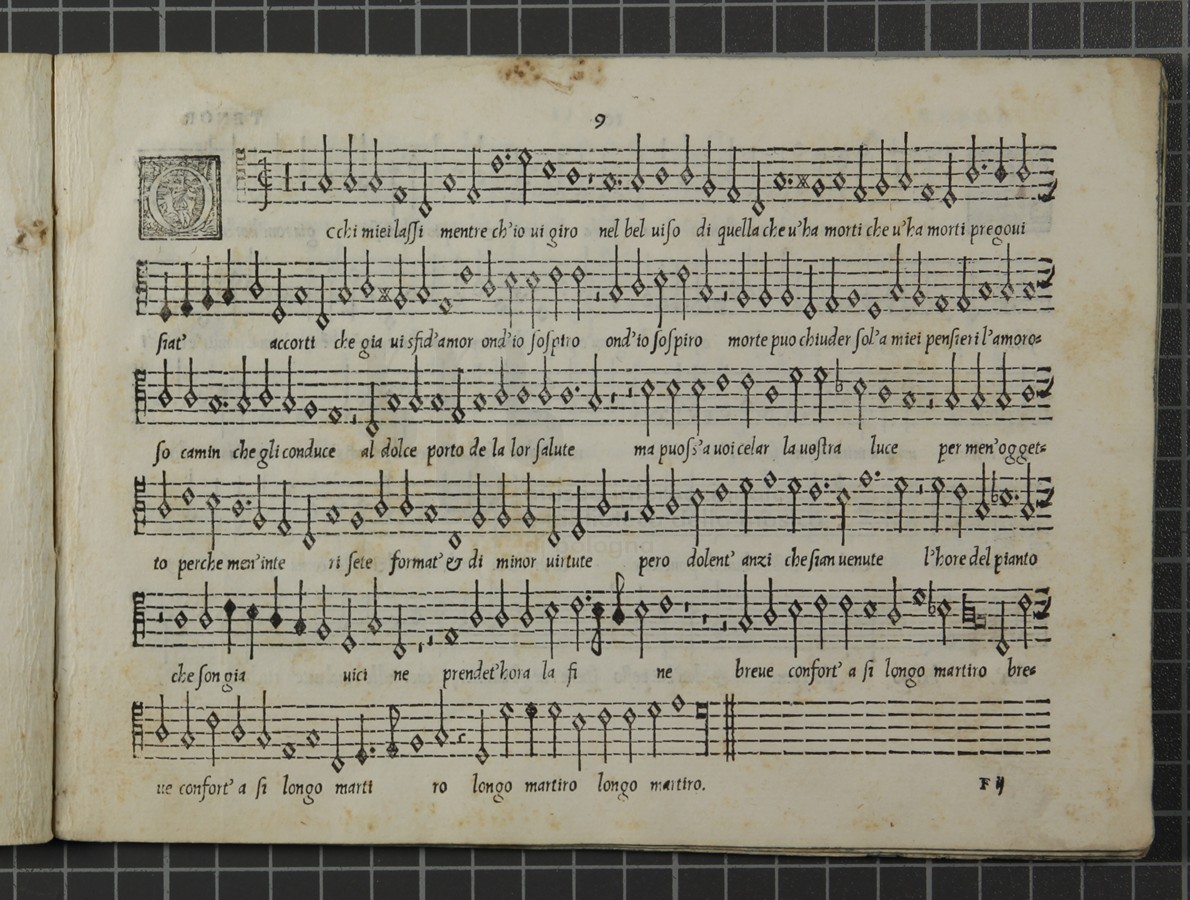 9
O
cchi miei laſſi mentre ch'io ui giro nel bel uiſo di quella che u'ha morti che u'ha morti pregoui
ſiat' accorti che gia ui sfid'amor ond'io ſoſpiro ond'io ſoſpiro morte puo chiuder ſol'a miei penſieri l'amoro=
ſo camin che gli conduce al dolce porto de la lor ſalute ma puoſs'a uoi celar la uoſtra luce per men'ogget=
to perche men'inte ri ſete format' & di minor uirtute pero dolent' anzi che ſian uenute l'hore del pianto
che ſon gia uici ne prendet'hora la fi ne breue confort' a ſi longo martiro bre=
ue confort' a ſi longo marti ro longo martiro longo martiro.
F ij